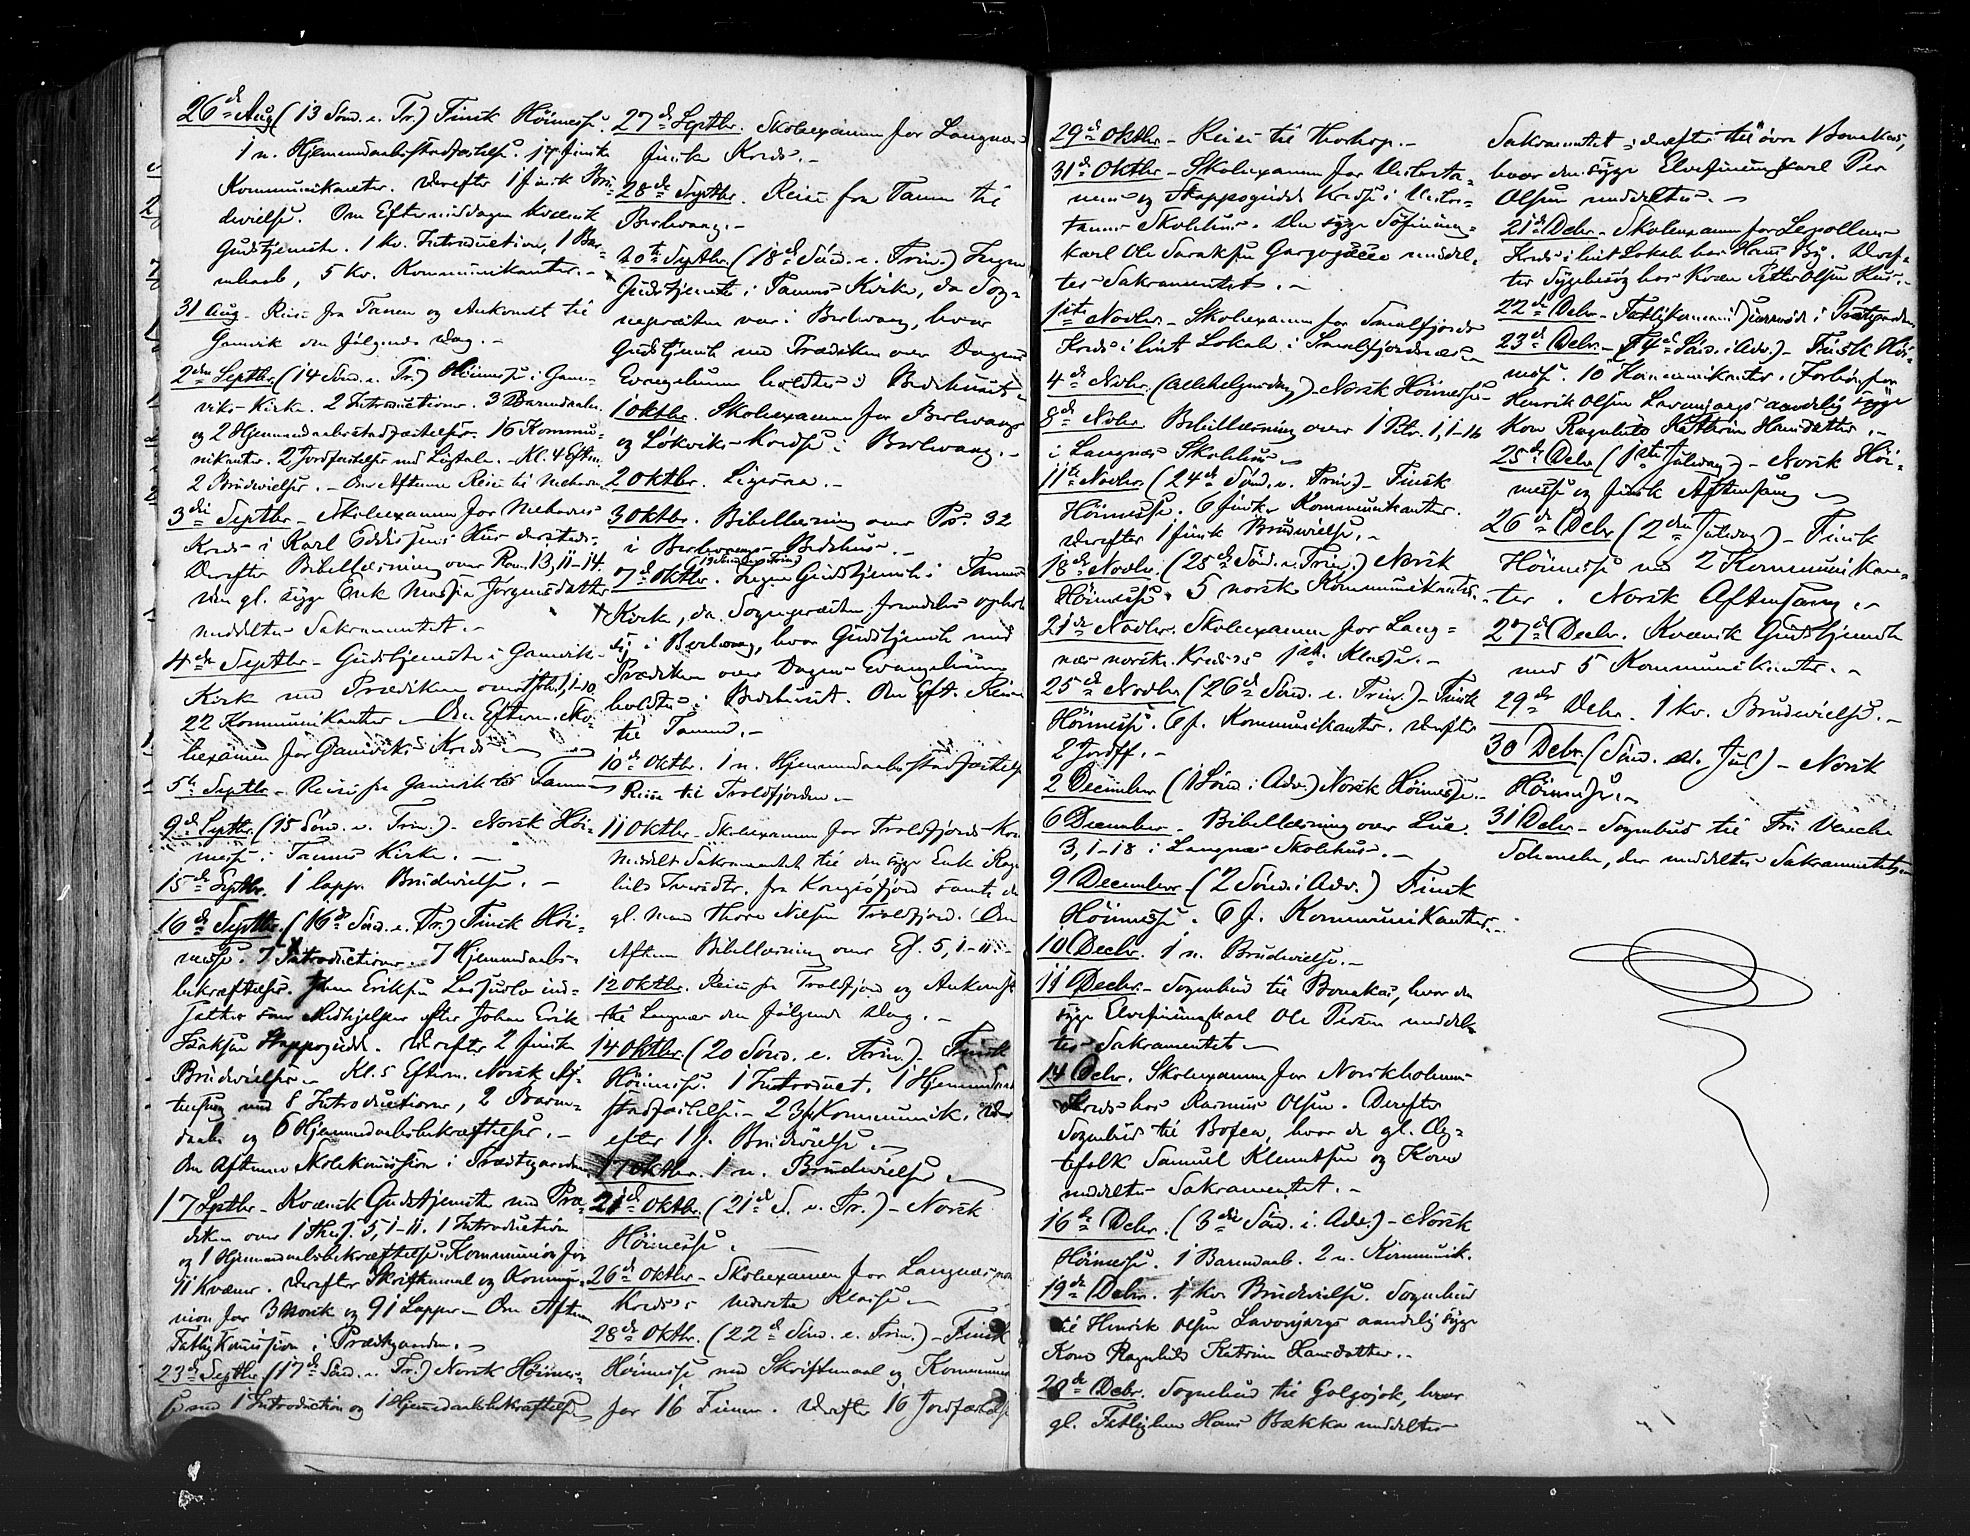 26de Aug. (13 Sønd. e. Tr.) Finsk Höimesse.
1 n. Hjemmedaabsstadfæstelse. 17 finske
Kommunikanter. Derefter 1 finsk Bru-
devielse. Om Eftermiddagen kvænsk
Gudstjeneste. 1 kv. Introduction, 1 Bar-
nedaab, 5 kv. Kommunikanter. -
31 Aug. Reise fra Tanen og Ankomst til
Gamvik den følgende Dag. -
2den Septbr. (14 Sønd. e. Tr.) Höimesse i Gam-
viks Kirke. 2 Introductioner. 3 Barnedaabe
og 2 Hjemmedaabsstadfæstelser. 16 Kommu-
nikanter. 2 Jordfæstelser med Ligtale. - Kl. 4 Efterm.
2 Brudevielser. - Om Aftenen Reise til Mehavn
3die Septbr. - Skoleexamen for Mehavns
Kreds i Karl Hus dersteds.
Derefter Bibellæsning over Rom. 13, 11-14.
Den gl. syge Enke Jørgensdatter
meddeltes Sakramentet. -
4de Septbr. - Gudstjeneste i Gamvik
Kirke med Prædiken over 1,1-10.
22 Kommunikanter. - Om Efterm. Sko-
leexamen for Gamviks Kreds. -
5te Septbr. - Reise fra Gamvik til Tanen
9de Septbr. (15 Sønd. e. Trin.) - Norsk Höi-
messe i Tanens Kirke. -
15de Septbr. 1 lapp. Brudevielse. -
16de Septbr. (16de Sønd. e. Tr.) Finsk Höi-
messe. 7 Introductioner. 7 Hjemmedaabs-
bekræftelser. Johan Eriksen ind-
sattes som Medhjelper efter Johan Erik
Isaksen Stappogiedde. Derefter 2 finske
Brudevielser. - Kl. 5 Efterm. Norsk Af-
tensang med 8 Introductioner, 2 Barne-
daabe og 6 Hjemmedaabsbekræftelser. -
Om Aftenen Skolekomission i Præstegaarden
17 Septbr. - Kvænsk Gudstjeneste med Præ-
diken over 1 Thess. 5, 1-11. 1 Introduction
og 1 Hjemmedaabsbekræftelse. Kommunion for
11 Kvæner. Derefter Skriftemaal og Kommu-
nion for 3 norsk og 91 Lapper. - Om Aftenen
Fattigkomission i Præstegaarden. -
23de Septbr. (17de Sønd. e. Tr.) Norsk Höimes-
se med 1 Introduction og 1 Hjemmedaabsbekræftelse
27de Septbr. Skoleexamen for Langnæs
finske Kreds. -
28de Septbr. Reise fra Tanen til
Berlevaag. -
30te Septbr. (18de Sønd. e. Trin.) Ingen
Gudstjeneste i Tanens Kirke, da Sog-
nepræsten var i Berlevaag, hvor
Gudstjeneste med Prædiken over Dagens
Evangelium holdtes i Bedehuset. -
1 Oktbr. Skoleexamen for Berlevaags
og Løkviks Kredse i Berlevaag. -
2 Oktbr. Ligesaa. -
3 Oktbr. Bibellæsning over Ps. 32
i Berlevaags Bedehus. -
(19 Sønd. e. Trin.)
7de Oktbr. Ingen Gudstjeneste i Tanens
Kirke, da Sognepræsten fremdeles opholdt
sig i Berlevaag, hvor Gudstjeneste med
Prædiken over Dagens Evangelium
holdtes i Bedehuset. Om Eft. Reise
til Tanen. -
10de Oktbr. 1 n. Hjemmedaabsstadfæstelse
Reise til Troldfjorden. -
11 Oktbr. - Skoleexamen for Troldfjords Kreds
Meddelt Sakramentet til den syge Enke Rag-
hild fra Kongsøfjord samt den
gl. Mand Thore Nilsen Troldfjord. Om
Aftenen Bibellæsning over Ef. 5, 1-11. -
12 Oktbr. Reise fra Troldfjord og Ankomst
til Langnæs den følgende Dag. -
14 Oktbr. (20 Sønd. e. Trin.) - Finsk
Höimesse. 1 Introduct. 1 Hjemmedaabs-
stadfæstelse. - 23 f. Kommunik. Der-
efter 1 f. Brudevielse. -
17 Oktbr. 1 n. Brudevielse. -
21de Oktbr. (21de S. e. Tr.) - Norsk
Höimesse. -
26de Oktbr. - Skoleexamen for Langnæs
Kreds's nederste Klasse. -
28de Oktbr. (22de Sønd. e. Trin.) - Finsk
Höimesse med Skriftemaal og Kommunion
for 16 Finner. Derefter 16 Jordfæstelser
29de Oktbr. - Reise til Thorhop. -
31de Oktbr. - Skoleexamen for Vestertane-
nens og Stappogiedde Kredse i Vester-
tanens Skolehus. Den syge Søfinnung-
karl Ole Saraksen meddel-
tes Sakramentet. -
1ste Novbr. - Skoleexamen for Smalfjords
Kreds i leiet Lokale i Smalfjordnæs. -
4de Novbr. (Allehelgensdag) - Norsk Höimesse. -
8de Novbr. Bibellæsning over 1 Petr. 1, 1-16
i Langnæs Skolehus. -
11te Novbr. (24de Sønd. e. Trin.) - Finsk
Höimesse. 6 finske Kommunikanter.
Derefter 1 finsk Brudevielse. -
18de Novbr. (25de Sønd. e. Trin.) Norsk
Höimesse. 5 norsk Kommunikanter.
21de Novbr. Skoleexamen for Lang-
næs norske Kreds's 1ste Klasse. -
25de Novbr. (26de Sønd. e. Trin.) - Finsk
Höimesse. 6 f. Kommunikanter. Derefter
2 Jordf. -
2 December (1 Sønd. i Adv.) Norsk Höimesse. -
6 December. - Bibellæsning over Luc.
3, 1-18 i Langnæs Skolehus. -
9 December - (2 Sønd. i Adv.) Finsk
Höimesse. 6 f. Kommunikanter. -
10 Decbr. 1 n. Brudevielse. -
11 Decbr. - Sognebud til Bonakas, hvor den
syge Elvefinnungkarl Ole Persen meddel-
tes Sakramentet. -
14 Debr. Skoleexamen for Norskholmens
Kreds hos Rasmus Olsen. Derefter
Sognebud til Boftsa, hvor de gl. Æg-
tefolk Samuel Klemetsen og Kone
meddeltes Sakramentet. -
16de Debr. (3die Sønd. i Adv.) - Norsk
Höimesse. 1 Barnedaab. 2 n. Kommunik.
19de Debr. 1 kv. Brudevielse. Sognebud
til Henrik Olsen Lavonjargs aandelig syge
Kone Ragnhild Katrine Hansdatter. -
20de Debr. Sognebud til Golgojok, hvor
gl. Fattiglem Hans Bække meddeltes
Sakramentet; derefter til øvre Bonakas,
hvor den syge Elvefinnungkarl Per
Olsen meddeltes. -
21de Debr. - Skoleexamen for Leirpollens
Kreds i leiet Lokale hos Hans By. Deref-
ter Sygebesøg hos Kvæn Petter Olsen Hus. -
22de Debr - Fattigkommissionsmøde i Præstegaarden
23de Debr. - (4de Sønd. i Adv.) - Finsk Höi-
messe. 10 Kommunikanter. Forbøn for
Henrik Olsen Lavonjargs aandelig syge
Kone Ragnhild Kathrine Hansdatter. -
25de Debr (1ste Juledag) - Norsk Höi-
messe og finsk Aftensang. -
26de Debr (2den Juledag) - Finsk
Höimesse med 2 Kommunikan-
ter. Norsk Aftensang. -
27de Decbr. Kvænsk Gudstjeneste
med 5 Kommunikanter. -
29de Debr. 1 kv. Brudevielse. -
30 Debr. (Sønd. e. Jul) - Norsk
Höimesse. -
31 Debr - Sognebud til Fru
der meddeltes Sakramentet